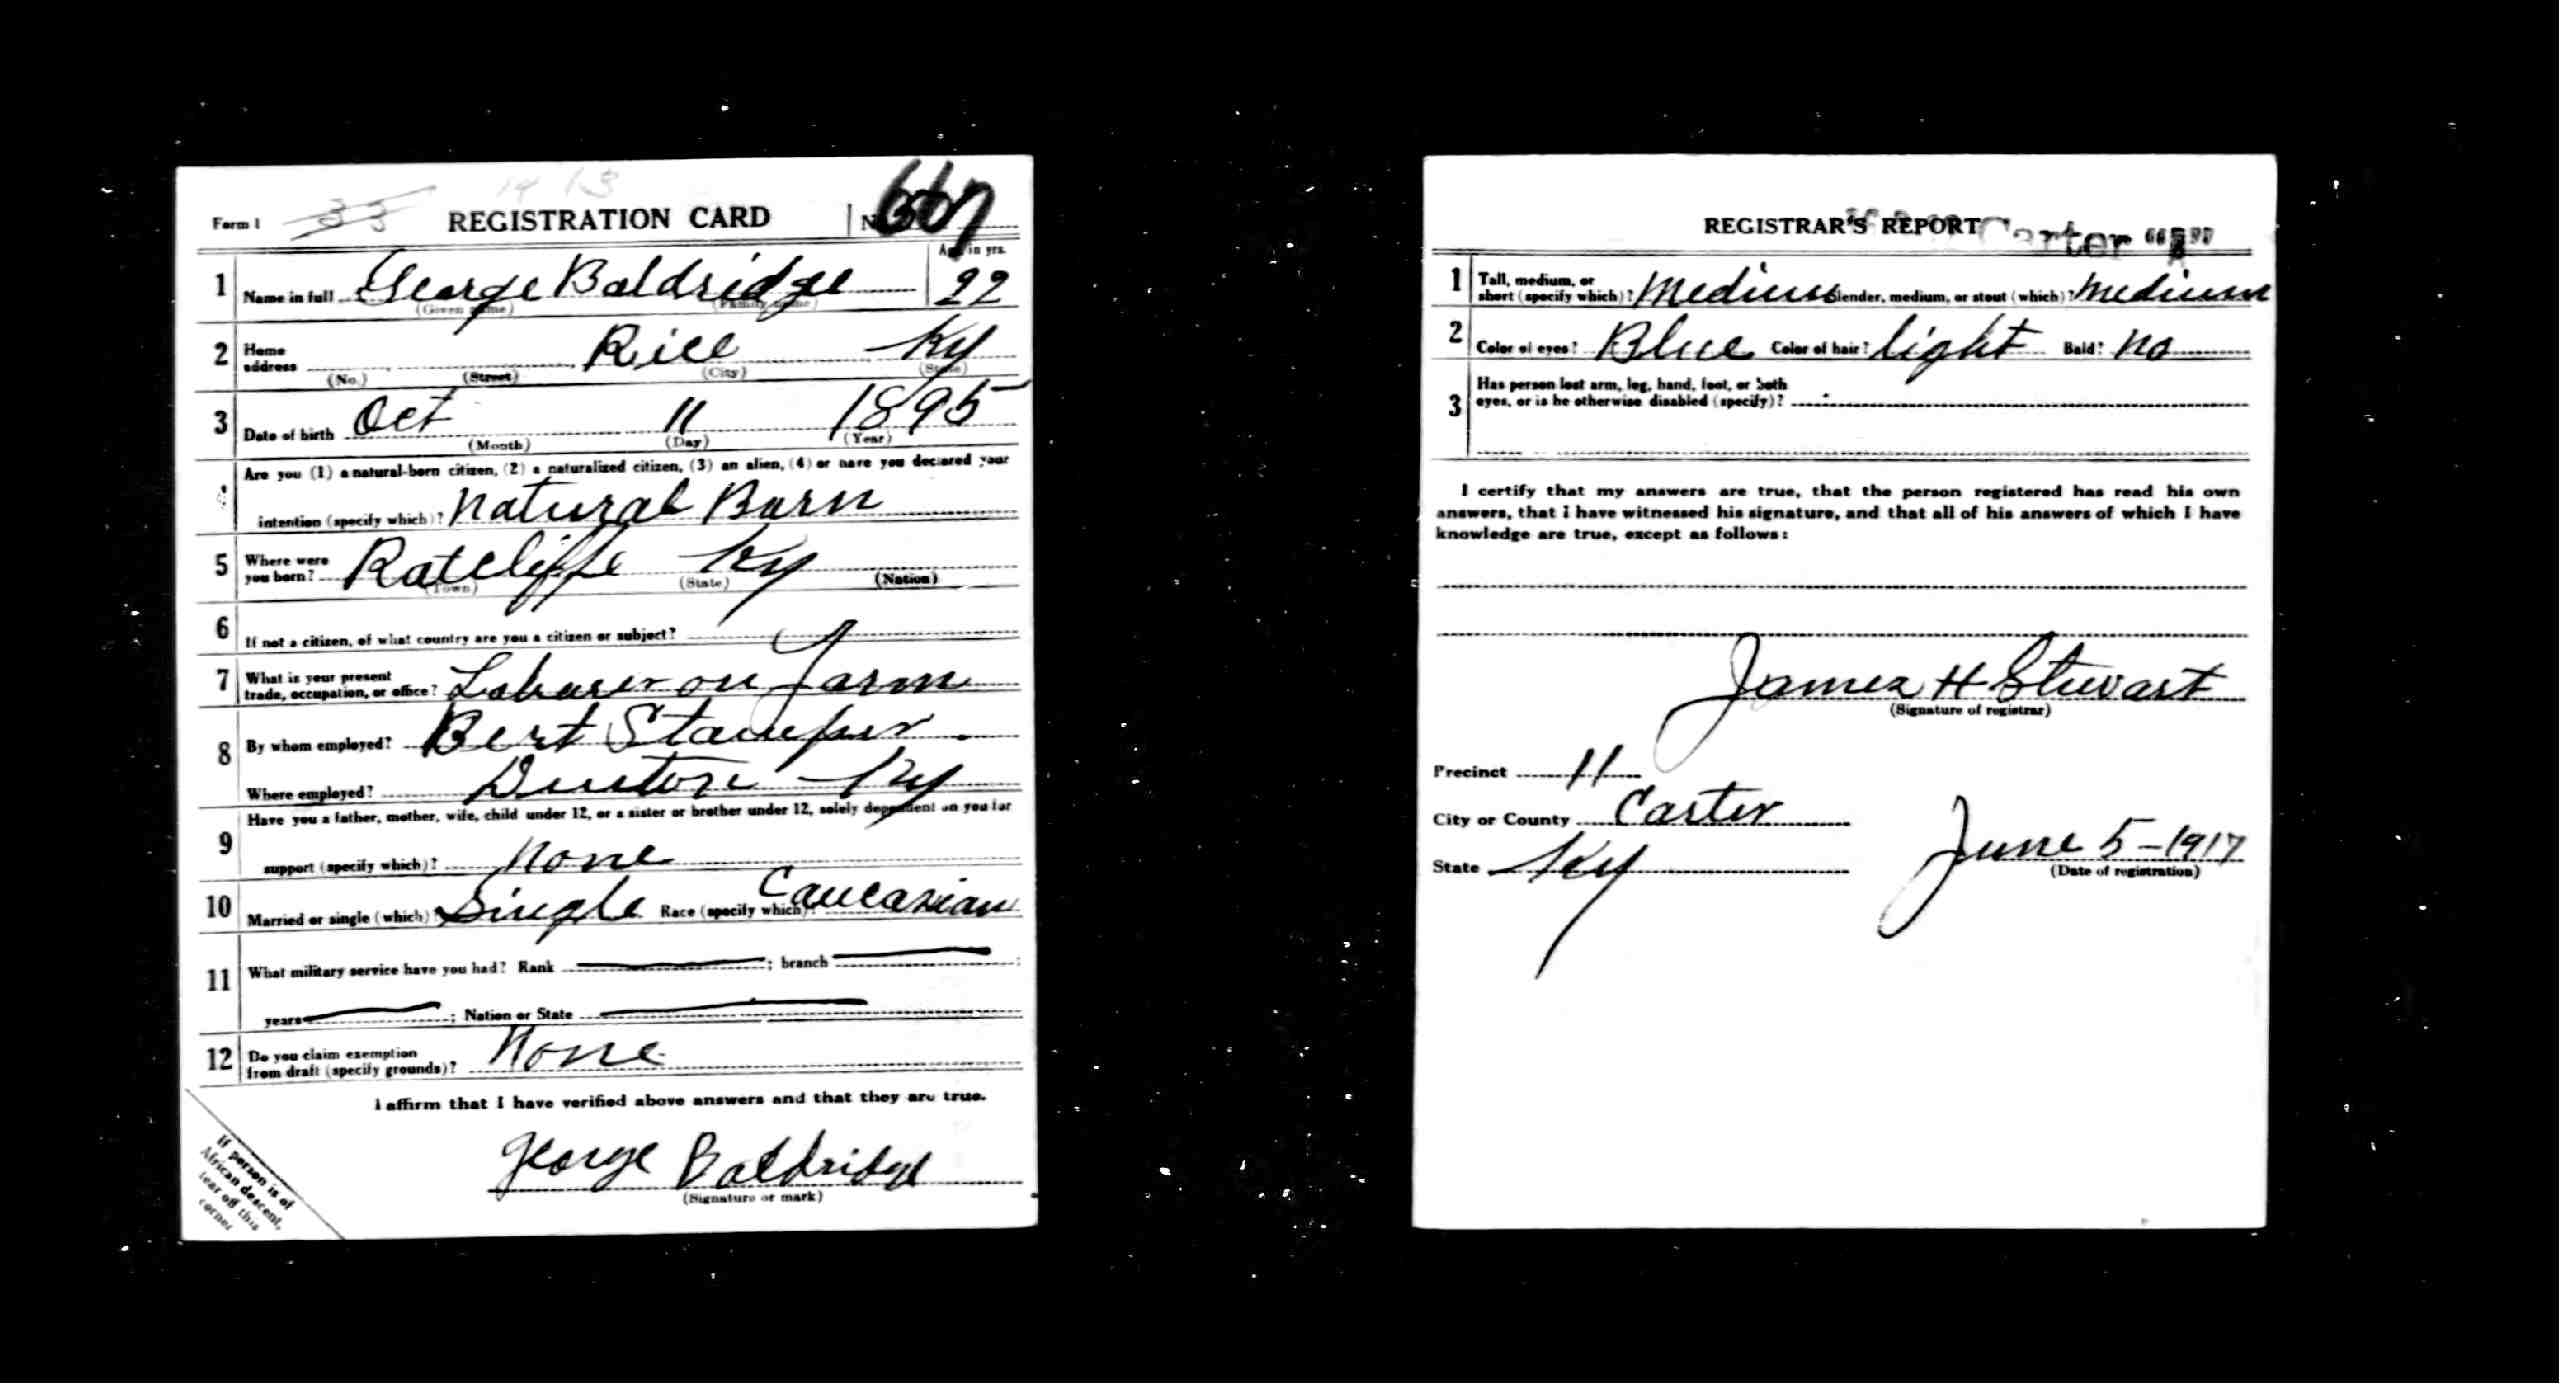 Form 1 33 REGISTRATION CARD No. 667
Age in yrs.
1 Name in full George Baldridge 22
(Given name) (Family name)
2 Home address Rice Ky
(No.) (Street) (City) (State)
3 Date of birth Oct 11 1895
(Month) (Day) (Year)
Are you (1) a natural-born citizen, (2) a naturalized citizen, (3) an alien, (4) or have you declared your
intention (specify which)? Natural Born
5 Where were you born? Ratcliffe Ky
(Town) (State) (Nation)
6 If not a citizen, of what country are you a citizen or subject?
7 What is your present trade, occupation, or office? Laborer on Farm
8 By whom employed? Bert Stamper
Where employed? Denton Ky
Have you a father, mother, wife, child under 12, or a sister or brother under 12, solely dependent on you for
9 support (specify which)? None
10 Married or single (which)? Single Race (specify which)? Caucasian
11 What military service have you had? Rank ; branch ;
years ; Nation or State
12 Do you claim exemption from draft (specify grounds)? None
I affirm that I have verified above answers and that they are true.
George Baldridge
(Signature or mark)
If person is of
African descent,
tear off this
corner
REGISTRAR'S REPORT Carter
1 Tall, medium, or short (specify which)? Medium Slender, medium, or stout (which)? Medium
2 Color of eyes? Blue Color of hair? light Bald? No
Has person lost arm, leg, hand, foot, or both
3 eyes, or is he otherwise disabled (specify)?
I certify that my answers are true, that the person registered has read his own
answers, that I have witnessed his signature, and that all of his answers of which I have
knowledge are true, except as follows:
James H Stewart
(Signature of registrar)
Precinct 11
City or County Carter
State Ky June 5-1917
(Date of registration)